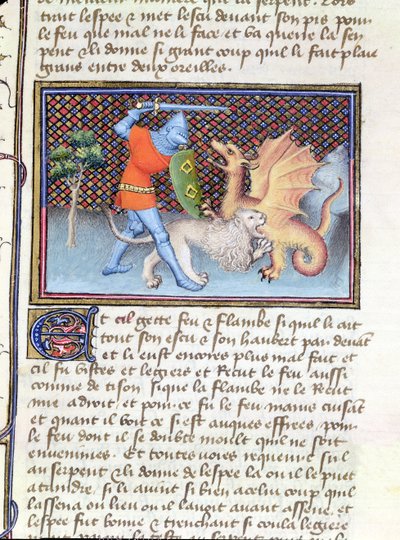 trait lespee & met lescu devant son pis pour
le feu que mal ne li face et va querre la ser
pent & li donne si grant coup quil li fait plaie
grans entre deux oreilles.
Et cil gette feu & flambe si quil li art
tout son escu & son haubert par devant
et la eust encores plus mal fait et
cil fu vistes et legiers et Recut le feu aussi
comme de tison. Si que la flambe ne le Recut
mie a droit. et pour ce fu le feu mains cuisant
et quant il voit ce si est auques effrees. pour
le feu dont il se doubte moult quil ne soit
envenimes. Et toutes voies requeurt sur
au serpent & li donne de lespee la ou il le puet
ataindre. si li avint si bien a celui coup quil
lassena ou lieu ou il lavoit avant assene. et
lespee fut bonne & trenchant si coula legiere